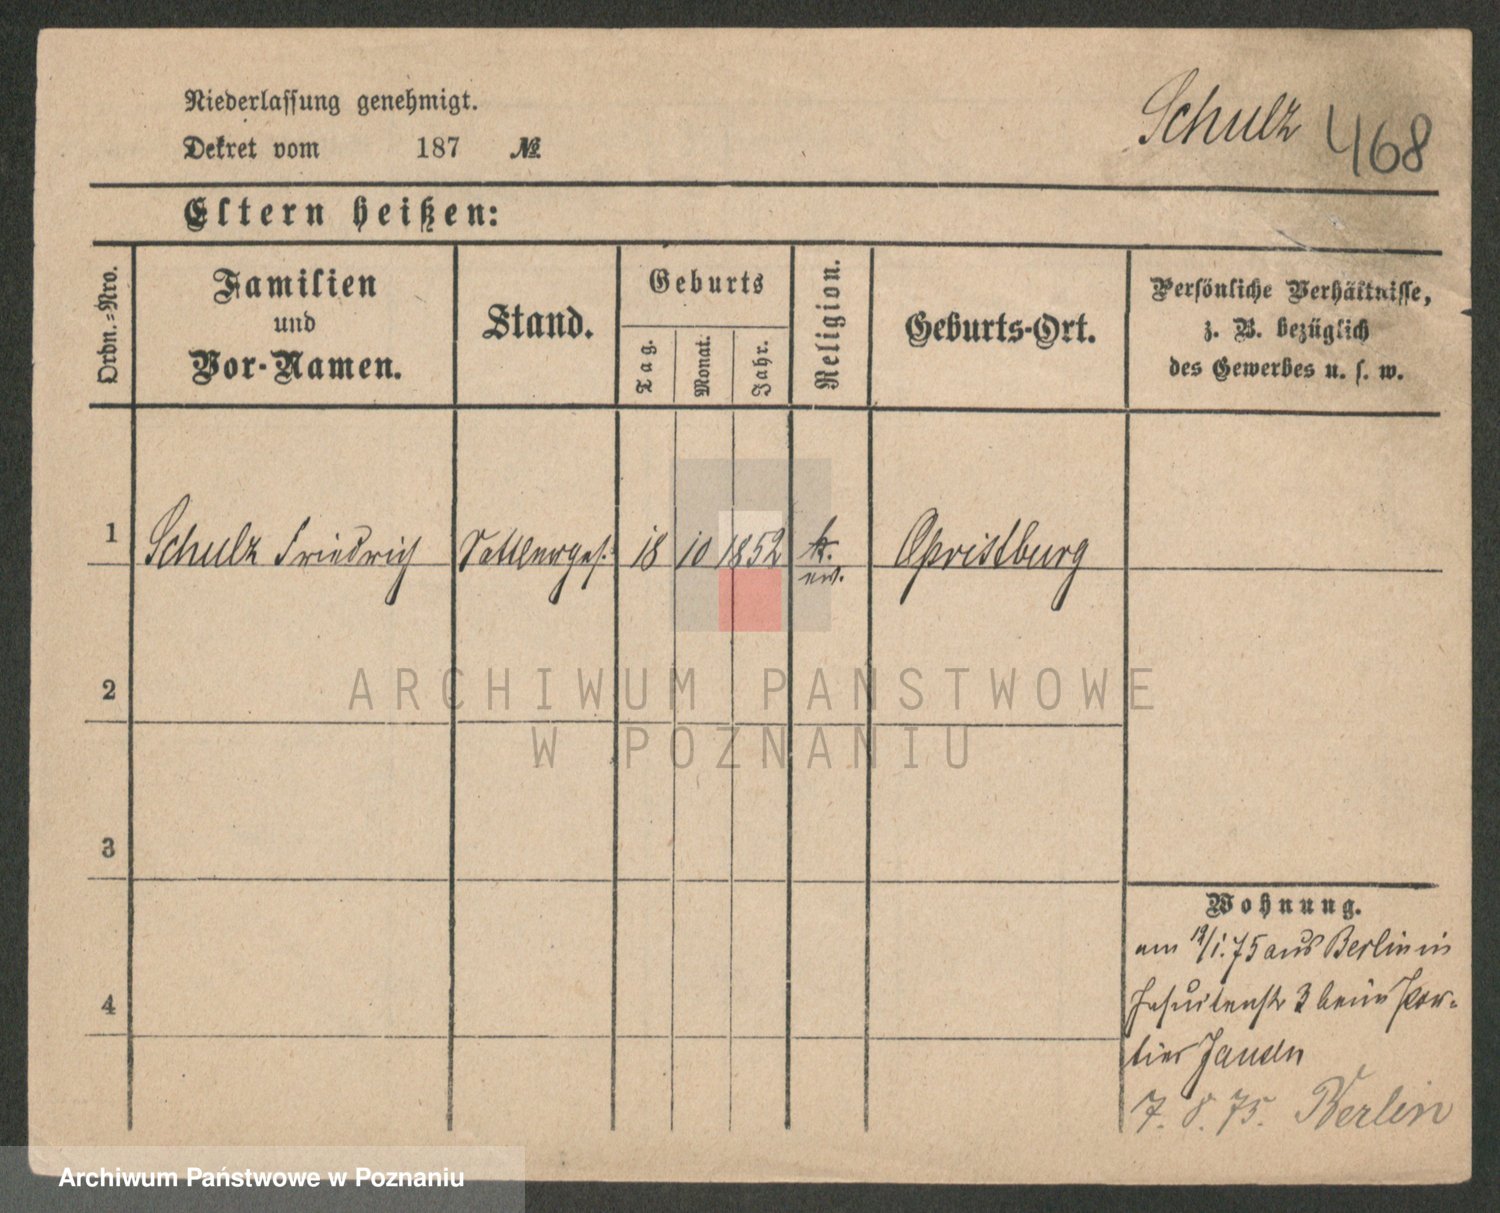 Niederlassung genehmigt.
Schulz 468
Dekret vom 187 №
Eltern heißen:
Ordn.-Nro.
Familien
und
Vor-Namen.
Stand.
Geburts
Tag.
Monat.
Jahr.
Religion.
Geburts-Ort.
Persönliche Verhältnisse,
z. B. bezüglich
des Gewerbes u. s. w.
1 Schulz Friedrich Sattlerges. 18 10 1852 k.
ev.
2
3
4
Wohnung.
am /1. 75 aus Berlin in
Jesuitenstr 3 beim Por-
tier
7. 8. 75. Berlin
ARCHIWUM PAŃSTWOWE
W POZNANIU
Archiwum Państwowe w Poznaniu